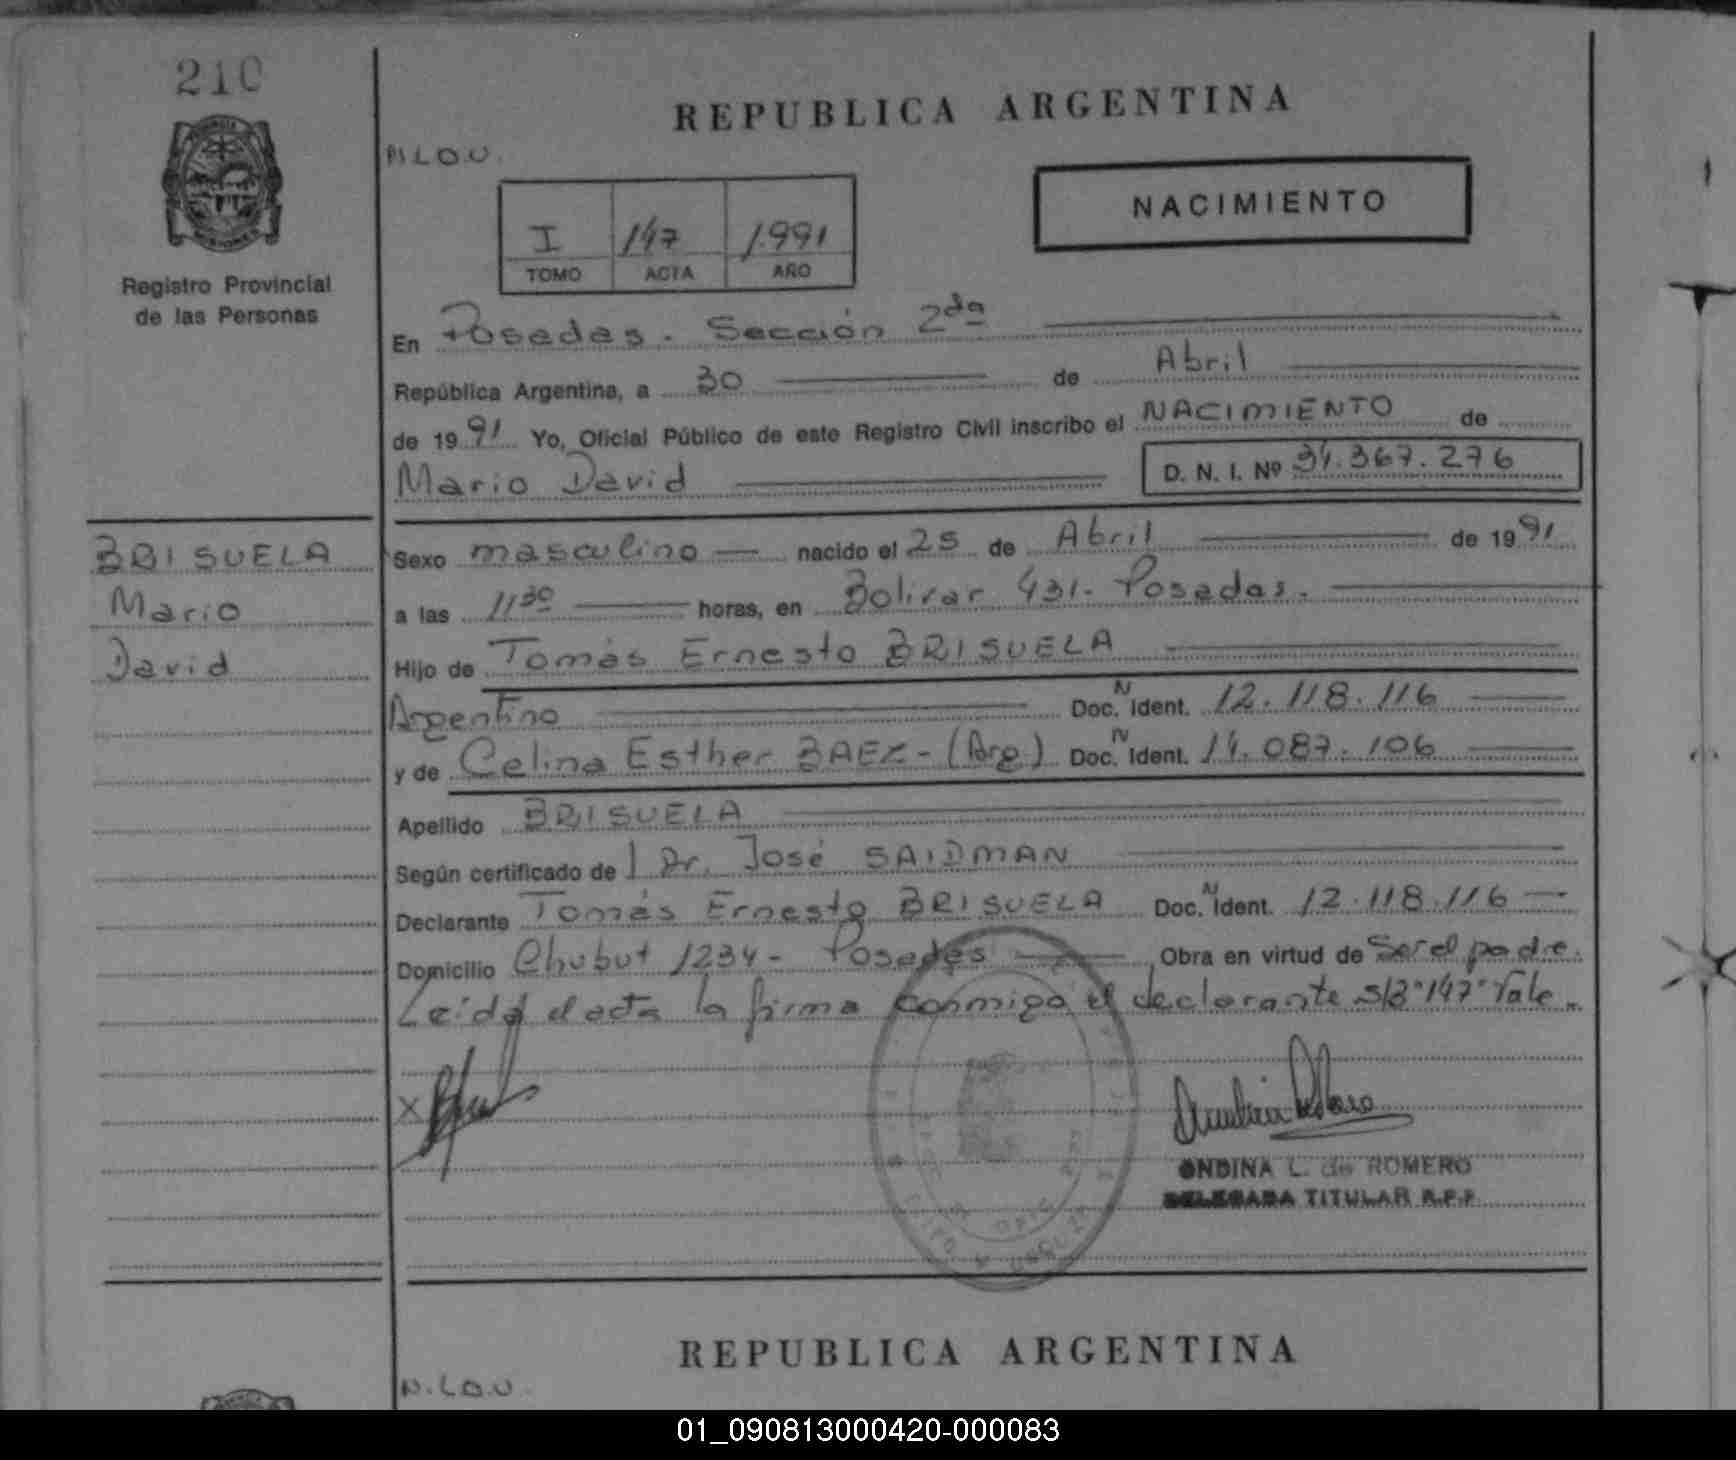 210
REPUBLICA ARGENTINA
N.L.O.U.
NACIMIENTO
I 147 1.991
TOMO ACTA AÑO
Registro Provincial
de las Personas
En Posadas. Sección 2da
República Argentina, a 30 de Abril
de 1991 Yo, Oficial Público de este Registro Civil inscribo el NACIMIENTO de
Mario David D. N. I. Nº 34.367.276
BRISUELA
Mario
David
Sexo masculino nacido el 25 de Abril de 1991
a las 11 30 horas, en Bolivar 431- Posadas.
Hijo de Tomás Ernesto BRISUELA
Argentino Doc. N Ident. 12.118.116
y de Celina Esther BAEZ - (Arg) Doc. N Ident. 14.087.106
Apellido BRISUELA
Según certificado de Dr. José SAIDMAN
Declarante Tomás Ernesto BRISUELA Doc. N Ident. 12.118.116
Domicilio Chubut 1234 - Posadas Obra en virtud de Ser el padre.
Leída el acta la firma conmigo el declarante S/B "147" Vale.
X
ONDINA L. de ROMERO
DELEGADA TITULAR R.P.P.
REPUBLICA ARGENTINA
N.L.O.U.
01_090813000420-000083